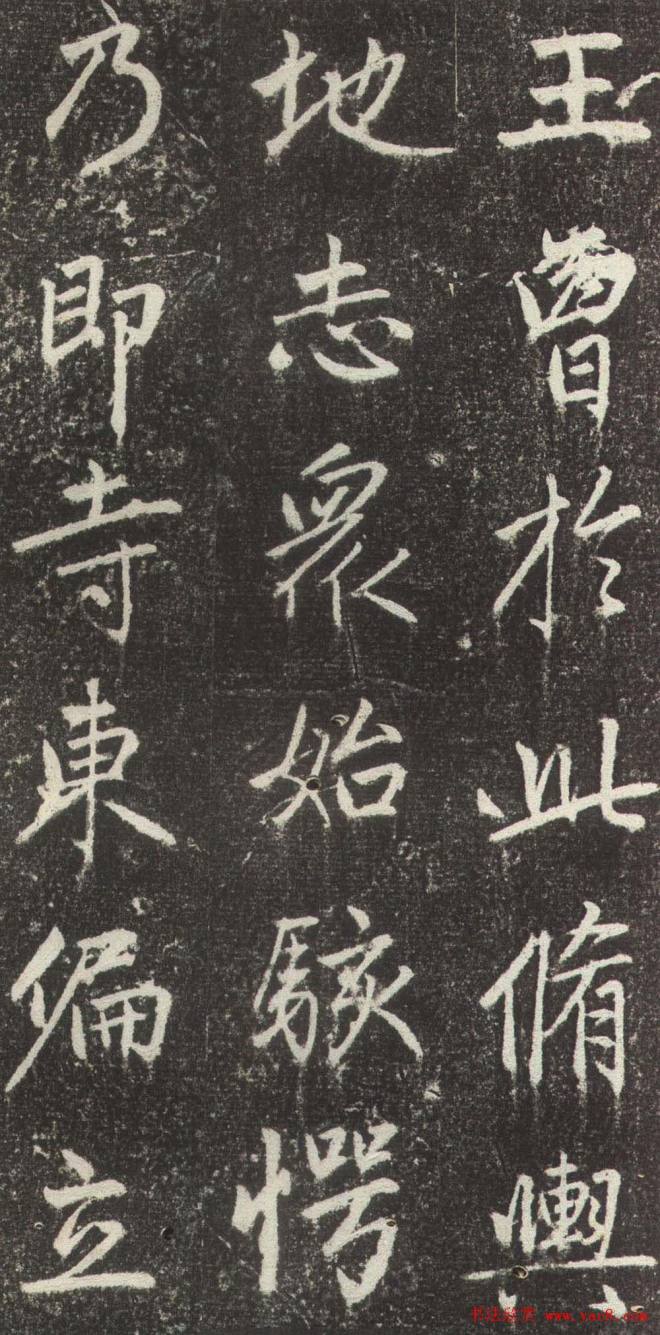 王曾於此脩輿
地志眾始駭愕
乃即寺東偏立
书法欣赏 www.yac8.com